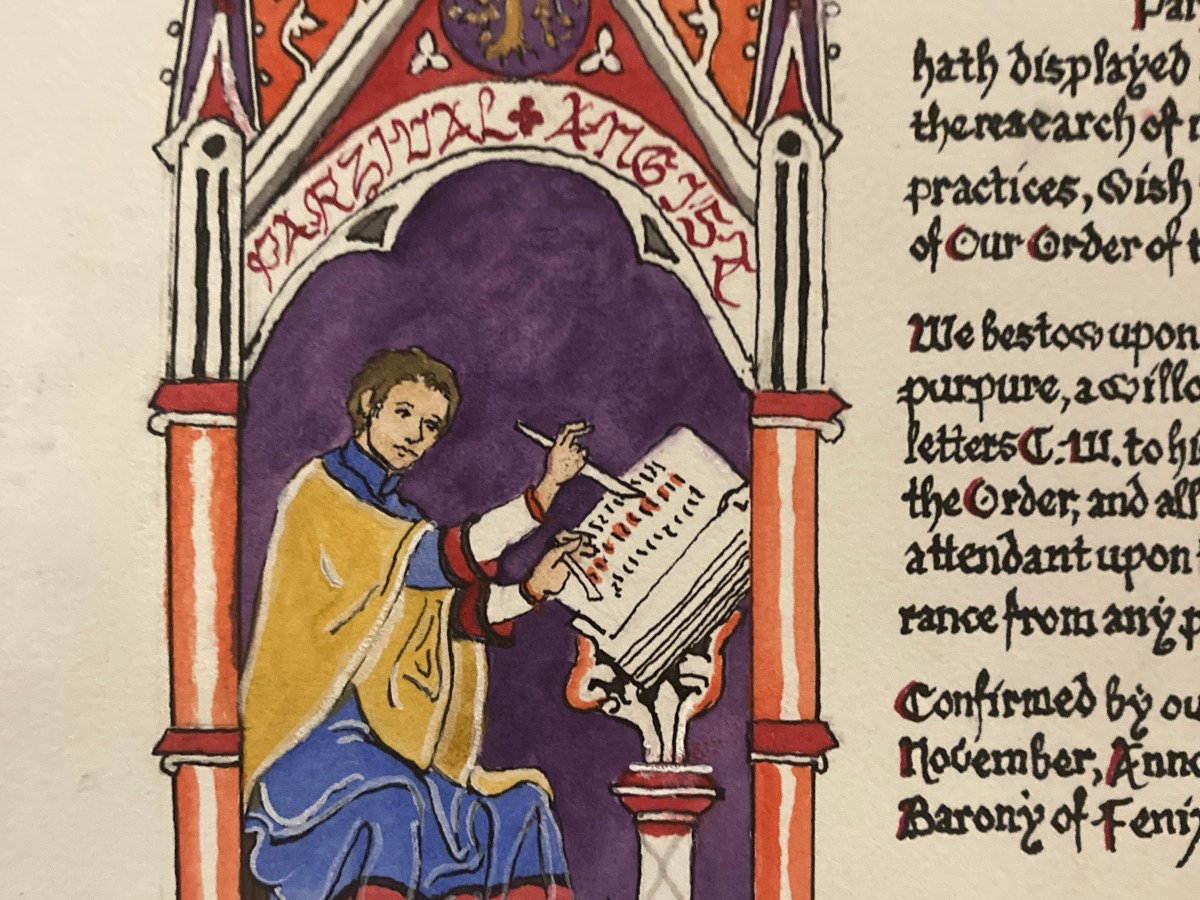 PARZIVAL ANGIST
Par
hath displayed
the research of
practices, wish
of Our Order of t
We bestow upon
purpure, a willo
letters C.W. to hi
the Order, and all
attendant upon
rance from any p
Confirmed by ou
November, Anno
Barony of Feni